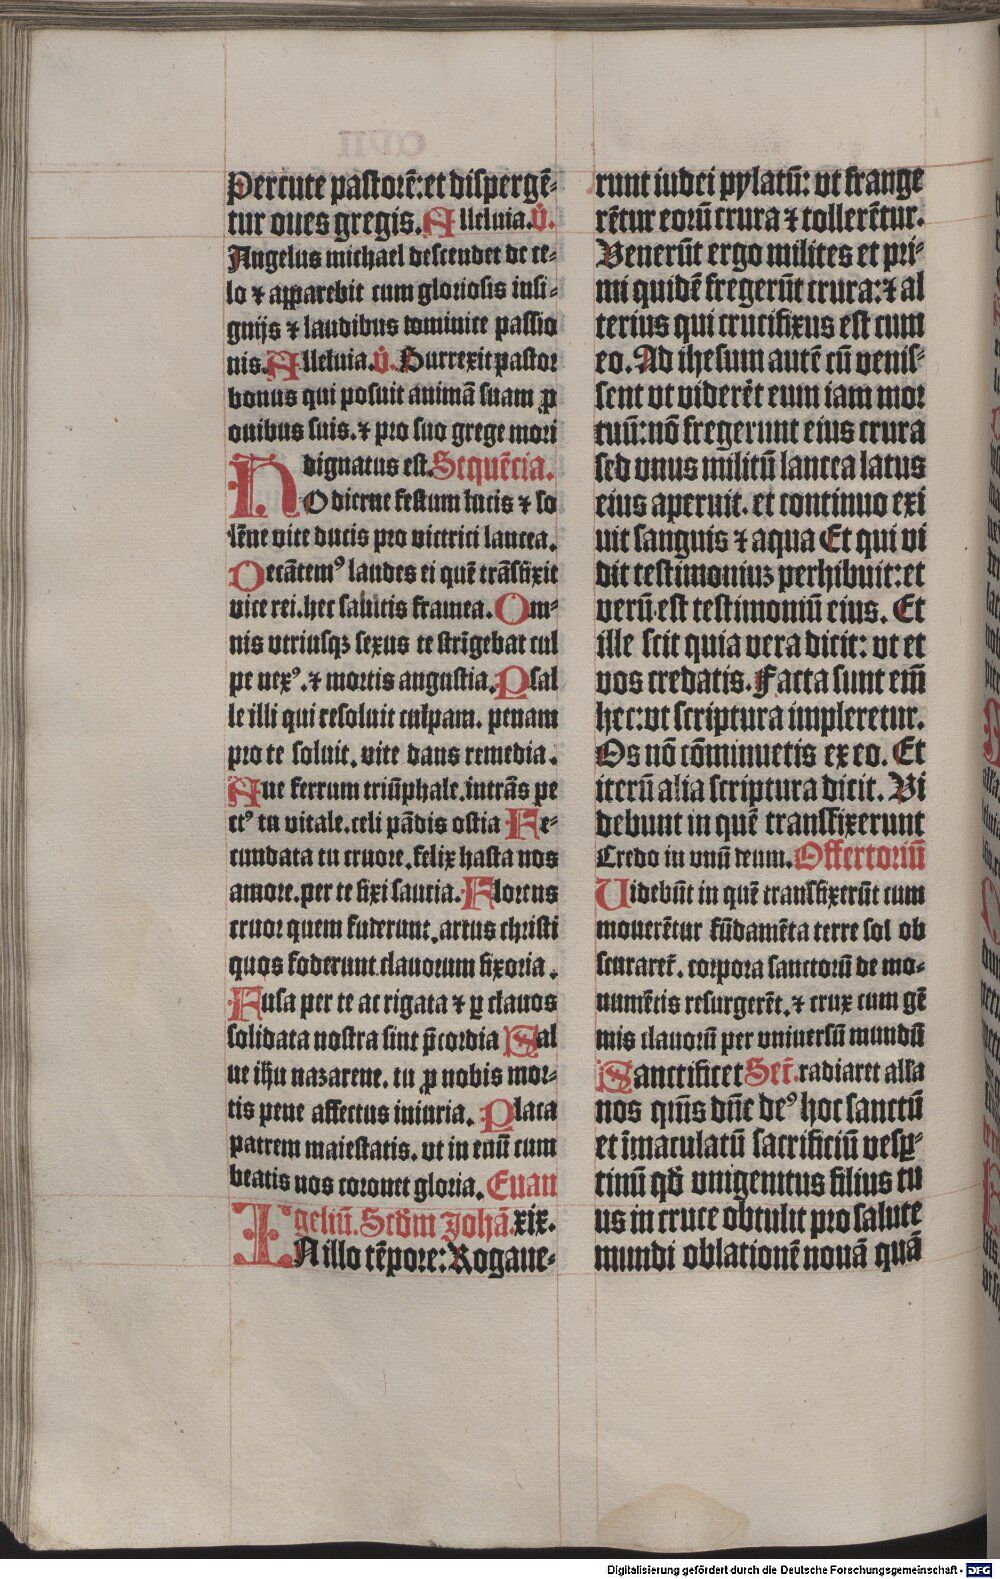 Percute pastorē: et dispergē-
tur oues gregis. Alleluia. V̊.
Angelus michael descendet de ce-
lo ⁊ apparebit cum gloriosis insi-
gnijs ⁊ laudibus dominice passio
nis. Alleluia. V̊. Surrexit pastor
bonus qui posuit animā suam ꝓ
ouibus suis. ⁊ pro suo grege mori
dignatus est. Sequēcia.
HOdierne festum lucis ⁊ so
lēne vite ducis pro victrici lancea.
Decātemꝰ laudes ei quē trāsfixit
vice rei. hec salutis framea. Om-
nis vtriusqꝫ sexus te strīgebat cul
pe nexꝰ. ⁊ mortis angustia. Psal
le illi qui resoluit culpam. penam
pro te soluit. vite dans remedia.
Aue ferrum triūphale. intrās pe
ctꝰ tu vitale. celi pādis ostia Fe-
cundata tu cruore. felix hasta nos
amore. per te fixi saucia. Florens
cruor quem fuderunt. artus christi
quos foderunt clauorum fixoria.
Fusa per te ac rigata ⁊ ꝑ clauos
solidata nostra sint p̄cordia Sal
ue ihū nazarene. tu ꝓ nobis mor-
tis pene affectus iniuria. Placa
patrem maiestatis. vt in euū cum
beatis nos coronet gloria. Euan
geliū. Scd̄m Johā. xix.
IN illo tēpore: Rogaue-
runt iudei pylatū: vt frange
rētur eorū crura ⁊ tollerētur.
Venerūt ergo milites et pri-
mi quidē fregerūt crura: ⁊ al
terius qui crucifixus est cum
eo. Ad ihesum autē cū venis-
sent vt viderēt eum iam mor
tuū: nō fregerunt eius crura
sed vnus militū lancea latus
eius aperuit. et continuo exi
uit sanguis ⁊ aqua Et qui vi
dit testimoniuꝫ perhibuit: et
verū est testimoniū eius. Et
ille scit quia vera dicit: vt et
vos credatis. Facta sunt em̄
hec: vt scriptura impleretur.
Os nō cōminuetis ex eo. Et
iterū alia scriptura dicit. Vi
debunt in quē transfixerunt
Credo in vnū deum. Offertoriū
Videbūt in quē transfixerūt cum
mouerētur fūdamēta terre sol ob
scuraret̄. corpora sanctorū de mo-
numētis resurgerēt. ⁊ crux cum gē
mis clauorū per vniuersū mundū
Sanctificet Secr̄. radiaret alľa
nos qm̄s dn̄e deꝰ hoc sanctū
et īmaculatū sacrificiū vesꝑ-
tinū qd̄ vnigenitus filius tu
us in cruce obtulit pro salute
mundi oblationē nouā quā
Digitalisierung gefördert durch die Deutsche Forschungsgemeinschaft - DFG